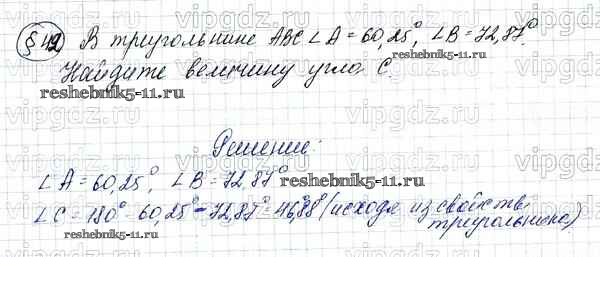 §42) В треугольнике ABC ∠A = 60,25°, ∠B = 72,87°.
Найдите величину угла C.
reshebnik5-11.ru
reshebnik5-11.ru
Решение:
∠A = 60,25°, ∠B = 72,87°
reshebnik5-11.ru
∠C = 180° - 60,25° - 72,87° = 46,88° (исходя из свойств
треугольника)
reshebnik5-11.ru